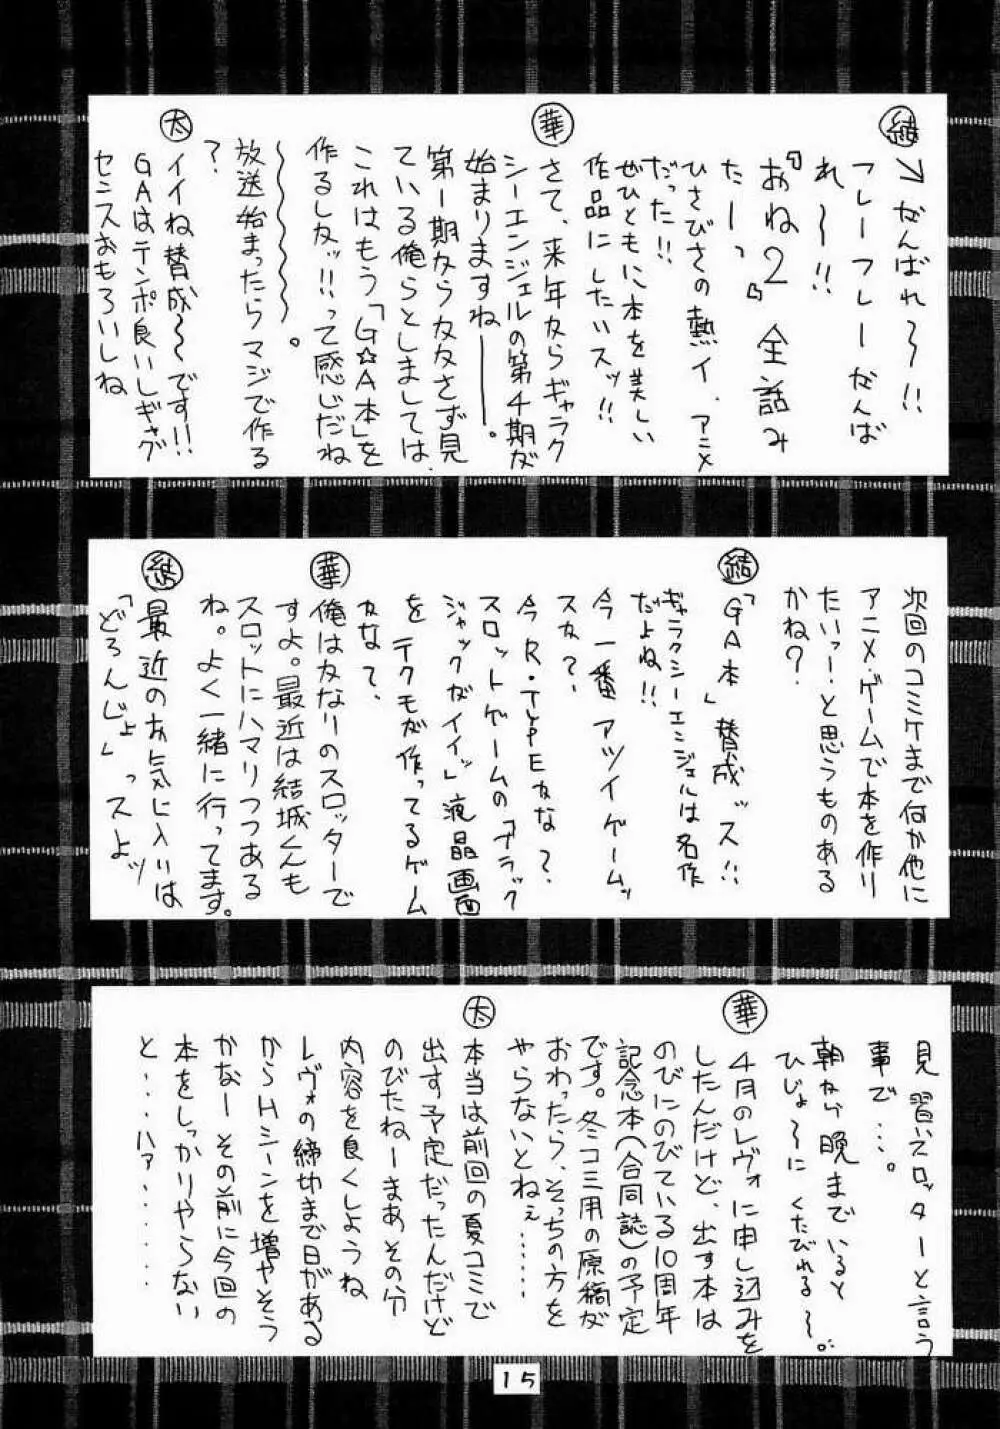 結→がんばれ〜!!
フレーフレーがんば
れ〜!!
『おね2』全話み
たーっ
ひさびさの熱イ、アニメ
だった!!
ぜひともに本を美しい
作品にしたいスッ!!
華
さて、来年からギャラク
シーエンジェルの第4期が
始まりますね―――。
第一期からかかさず見
ている俺らとしましては、
これはもう「G☆A本」を
作るしかッ!!って感じだね
〜〜〜〜〜〜。
放送始まったらマジで作る
?
太
イイね賛成〜〜です!!
GAはテンポ良いしギャグ
センスおもろいしね
次回のコミケまで何か他に
アニメ・ゲームで本を作り
たいっー!と思うものある
かね?
結
「GA本」賛成ッス!!
ギャラクシーエンジェルは名作
だよね!!
今一番アツイゲームッ
スか?、
今R・TYPEかな?、
スロットゲームの「ブラック
ジャックがイイッ」液晶画面
を テクモが作ってるゲーム
かな て、
華
俺はかなりのスロッターで
すよ。最近は結城くんも
スロットにハマりつつある
ね。よく一緒に行ってます。
結
最近のお気に入りは
「どろんじょ」っスよッ
見習いスロッターと言う
事で…。
朝から晩までいると
ひじょ〜に くたびれる〜。
華
4月のレヴォに申し込みを
したんだけど、出す本は
のびにのびている10周年
記念本(合同誌)の予定
です。冬コミ用の原稿が
おわったら、そっちの方を
やらないとねぇ……
太
本当は前回の夏コミで
出す予定だったんだけど
のびたねーまあその分
内容を良くしようね
レヴォの締切まで日がある
からHシーンを増やそう
かなー その前に今回の
本をしっかりやらない
と‥‥ハァ‥‥‥‥
15